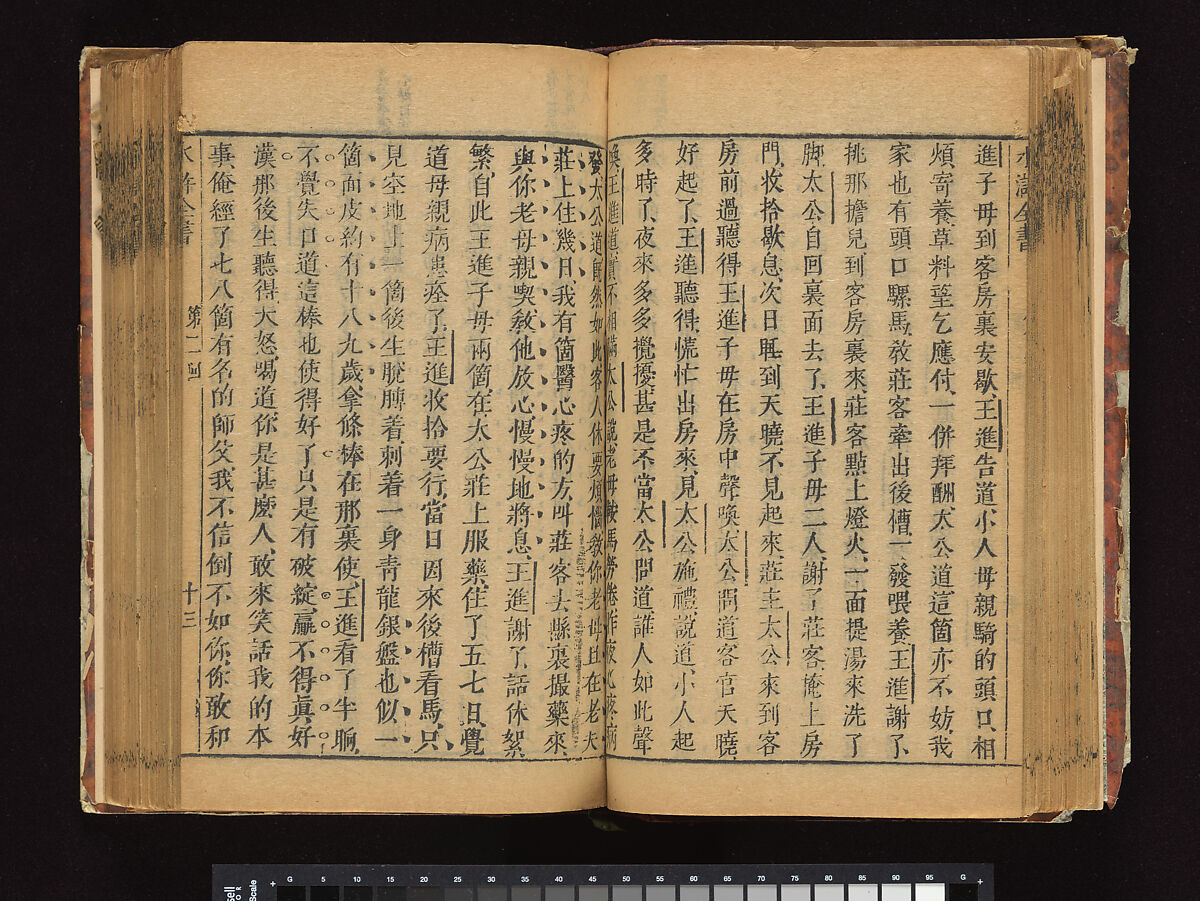 進子母到客房裏安歇王進告道小人母親騎的頭口相
煩寄養草料望乞應付一併拜酬太公道這箇亦不妨我
家也有頭口騾馬教莊客牽出後槽一發喂養王進謝了
挑那擔兒到客房裏來莊客點上燈火一面提湯來洗了
脚太公自回裏面去了王進子母二人謝了莊客掩上房
門收拾歇息次日睡到天曉不見起來莊主太公來到客
房前過聽得王進子母在房中聲喚太公問道客官天曉
好起了王進聽得慌忙出房來見太公施禮說道小人起
多時了夜來多多攪擾甚是不當太公問道誰人如此聲
喚王進道實不相瞞太公說老母鞍馬勞倦昨夜心疼病
發太公道旣然如此客人休要煩惱教你老母且在老夫
莊上住幾日我有箇醫心疼的方叫莊客去縣裏撮藥來
與你老母親喫教他放心慢慢地將息王進謝了話休絮
繁自此王進子母兩箇在太公莊上服藥住了五七日覺
道母親病患痊了王進收拾要行當日因來後槽看馬只
見空地上一箇後生脫膊着刺着一身靑龍銀盤也似一
箇面皮約有十八九歲拿條棒在那裏使王進看了半晌
不覺失口道這棒也使得好了只是有破綻贏不得眞好
漢那後生聽得大怒喝道你是甚麽人敢來笑話我的本
事俺經了七八箇有名的師父我不信倒不如你你敢和
第二回
十三
+ G 5 10 15 20 25 30 35 40 45 50 55 60 65 70 75 80 85 90 95 G +